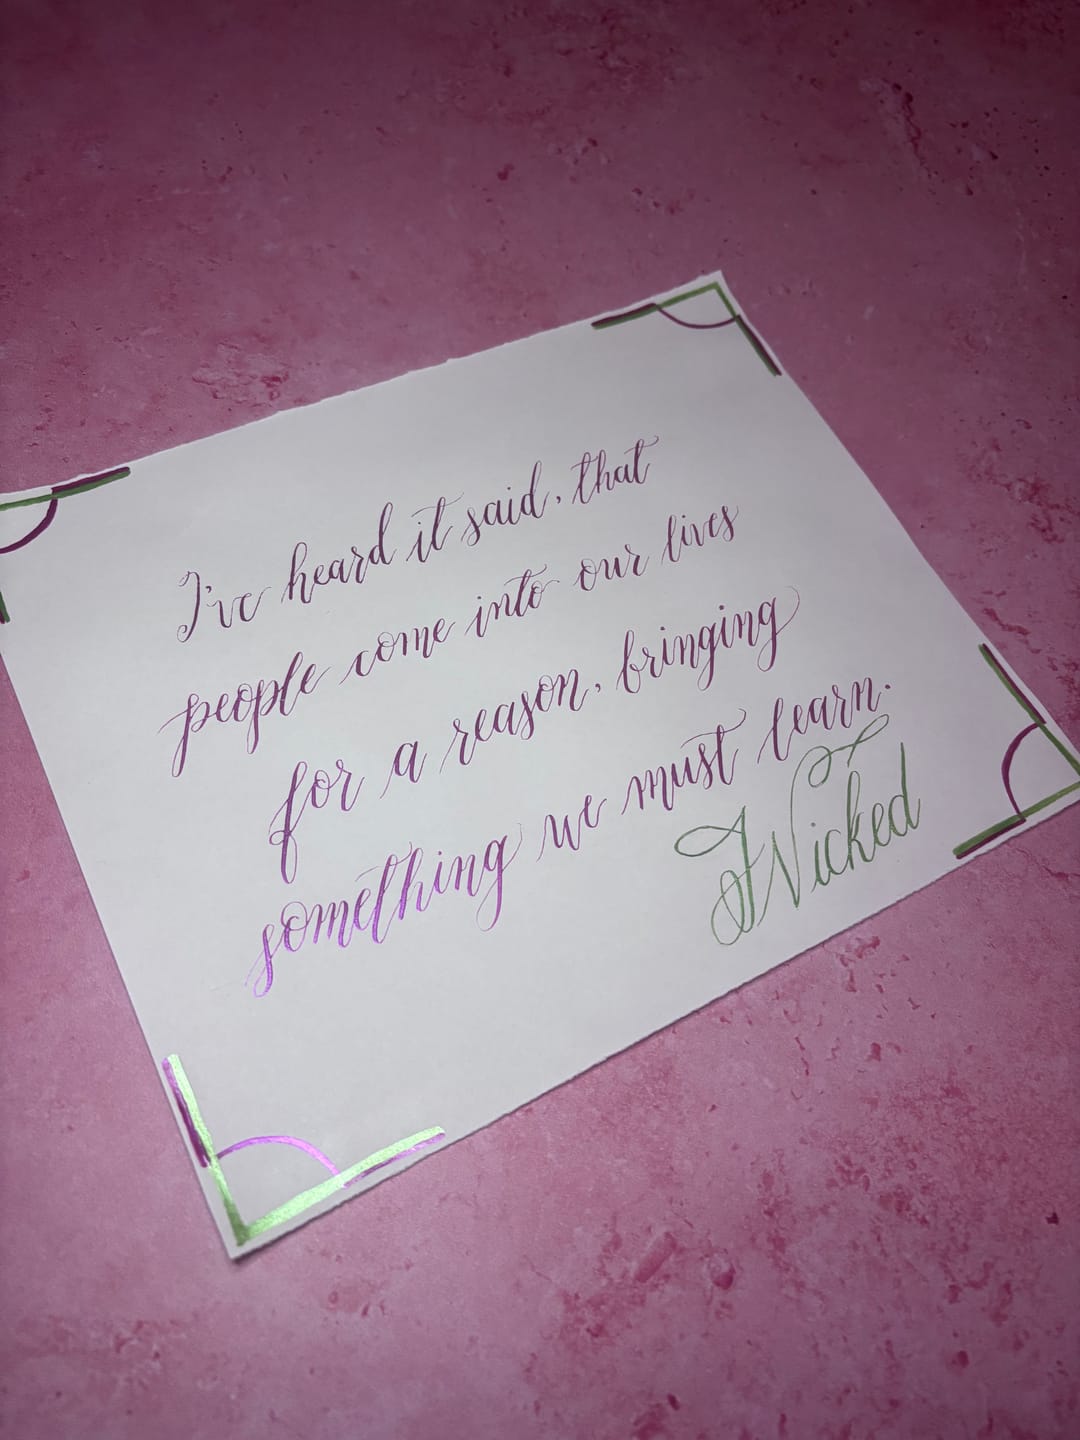 I've heard it said, that
people come into our lives
for a reason, bringing
something we must learn.
Wicked